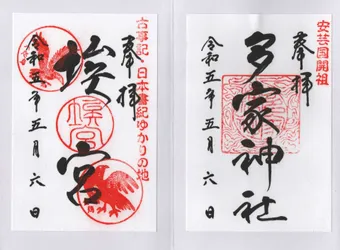 安芸国開祖
奉拝
多家神社
令和五年五月六日
古事記 日本書紀ゆかりの地
奉拝
埃宮
埃宮
令和五年五月六日